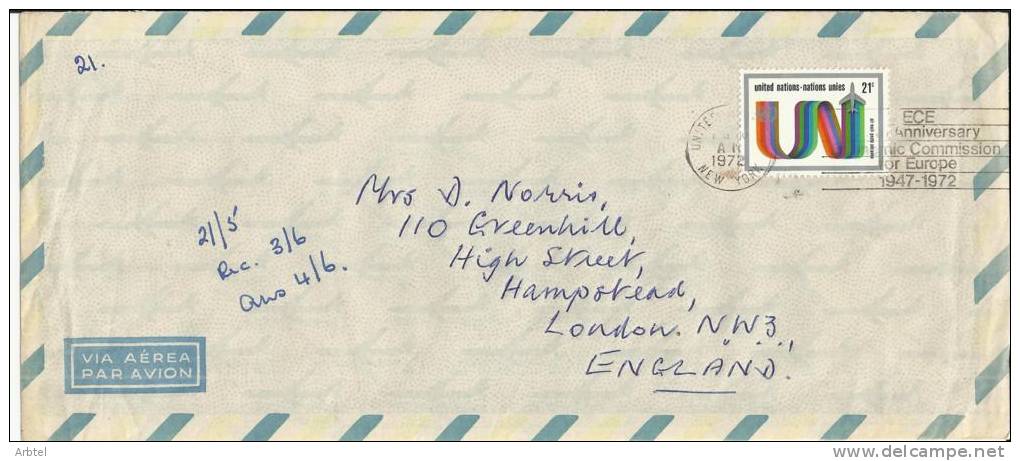 21.
united nations-nations unies 21c
UNITED
AM
1972
NEW YORK
ECE
Anniversary
mic Commission
for Europe
1947-1972
Mrs D. Norris,
110 Greenhill,
High Street,
Hampstead,
London. NW3.,
ENGLAND.
21/5
Rec. 3/6
Ans 4/6.
VIA AÉREA
PAR AVION
Arbtel
delcampe.net